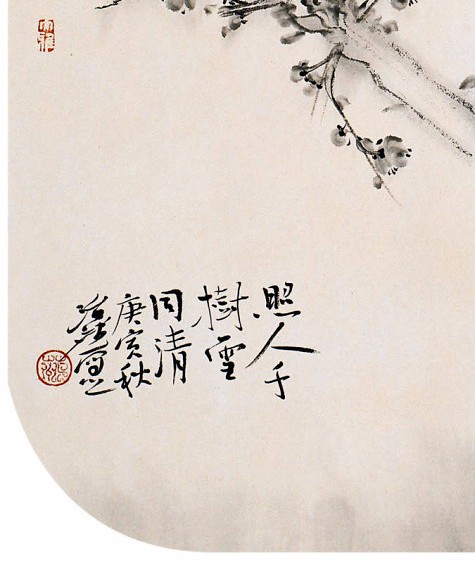 照人千
樹雪
同清
庚寅秋
寫